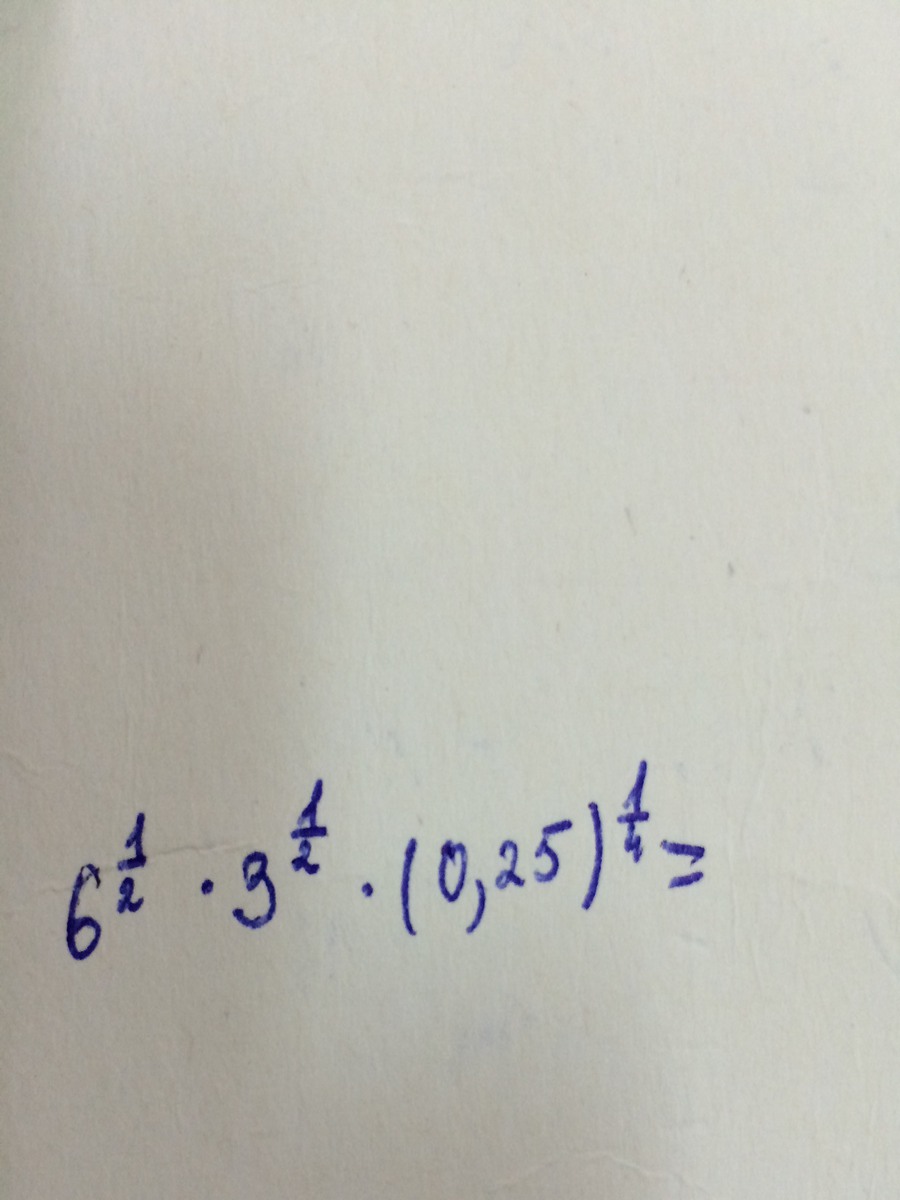 6^{\frac{1}{2}} · 3^{\frac{1}{2}} · (0,25)^{\frac{1}{4}} =